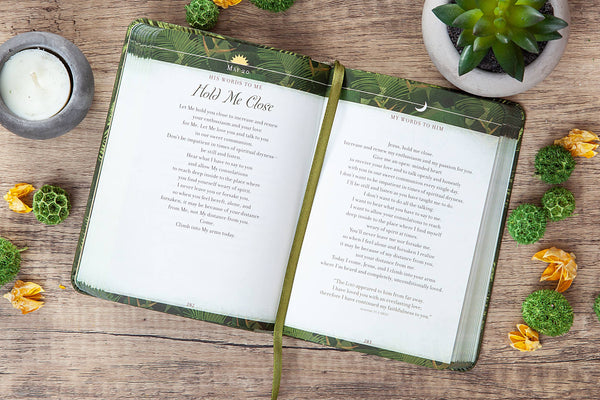 May 20
HIS WORDS TO ME
Hold Me Close
Let Me hold you close to increase and renew
your enthusiasm and your love
for Me. Let Me love you and talk to you
in our sweet communion.
Don't be impatient in times of spiritual dryness—
be still and listen.
Hear what I have to say to you
and allow My consolations
to reach deep inside to the place where
you find yourself weary of spirit.
I never leave you or forsake you,
so when you feel bereft, alone, and
forsaken, it may be because of your distance
from Me, not My distance from you.
Come.
Climb into My arms today.
282
MY WORDS TO HIM
Jesus, hold me close.
Increase and renew my enthusiasm and my passion for you.
Give me an open-minded heart
to receive your love and to talk openly and honestly
with you in our sweet communion every single day.
I don't want to be impatient in times of spiritual dryness.
I'll be still and listen as you have taught me to do.
I don't want to do all the talking.
I want to hear what you have to say to me.
I want to allow your consolations to reach
deep inside to the place where I find myself
weary of spirit at times.
You'll never leave me nor forsake me,
so when I feel alone and forsaken I realize
it may be because of my distance from you,
not your distance from me.
Today I come, Jesus, and I climb into your arms
where I'm heard and completely, unconditionally loved.
"The LORD appeared to him from far away.
I have loved you with an everlasting love;
therefore I have continued my faithfulness to you."
JEREMIAH 31:3
283